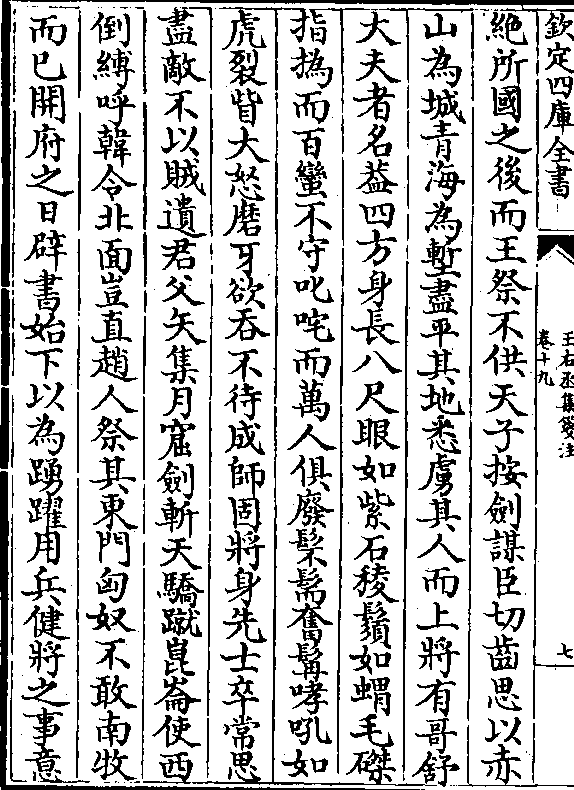 欽定四庫全書
王右丞集箋注
卷十九
七
絶所國之後而王祭不供天子按劍謀臣切齒思以赤
山為城青海為塹盡平其地悉虜其人而上將有哥舒
大夫者名葢四方身長八尺眼如紫石稜鬚如蝟毛磔
指撝而百蠻不守叱咤而萬人俱廢髤髵奮髯哮吼如
虎裂眥大怒磨牙欲吞不待成師固將身先士卒常思
盡敵不以賊遺君父矢集月窟劍斬天驕蹴崑崙使西
倒縛呼韓令北面豈直趙人祭其東門匈奴不敢南牧
而已開府之日辟書始下以為踴躍用兵健將之事意